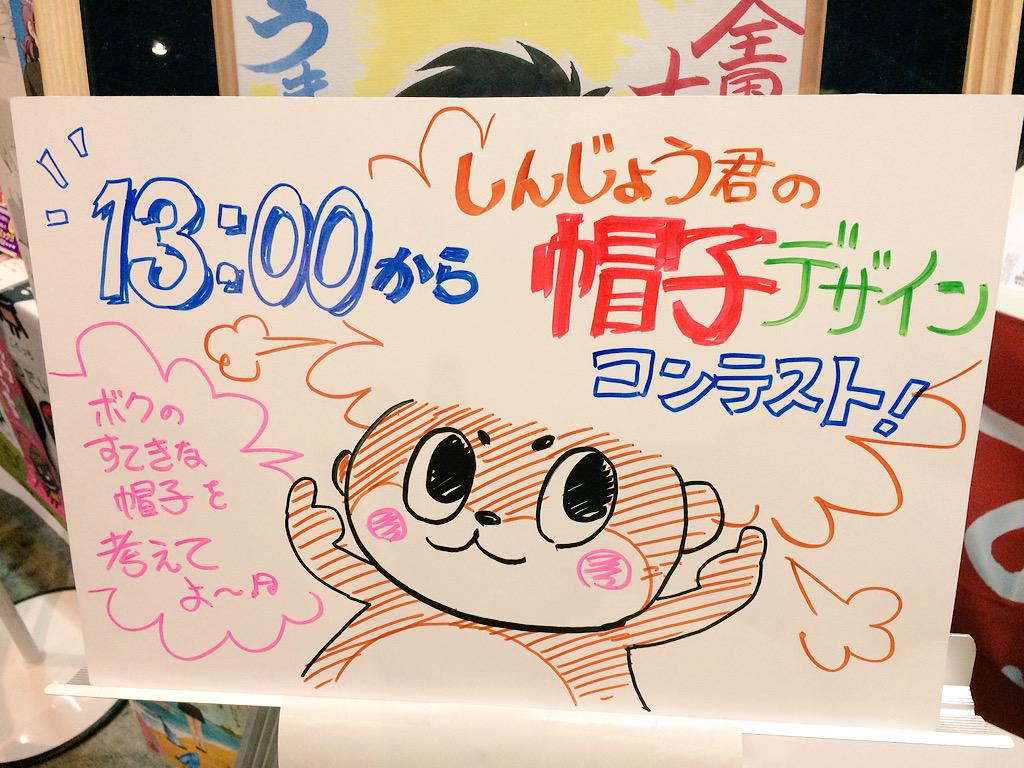 全国
13:00から
しんじょう君の
帽子デザイン
コンテスト!
ボクの
すてきな
帽子を
考えて
よ〜♫